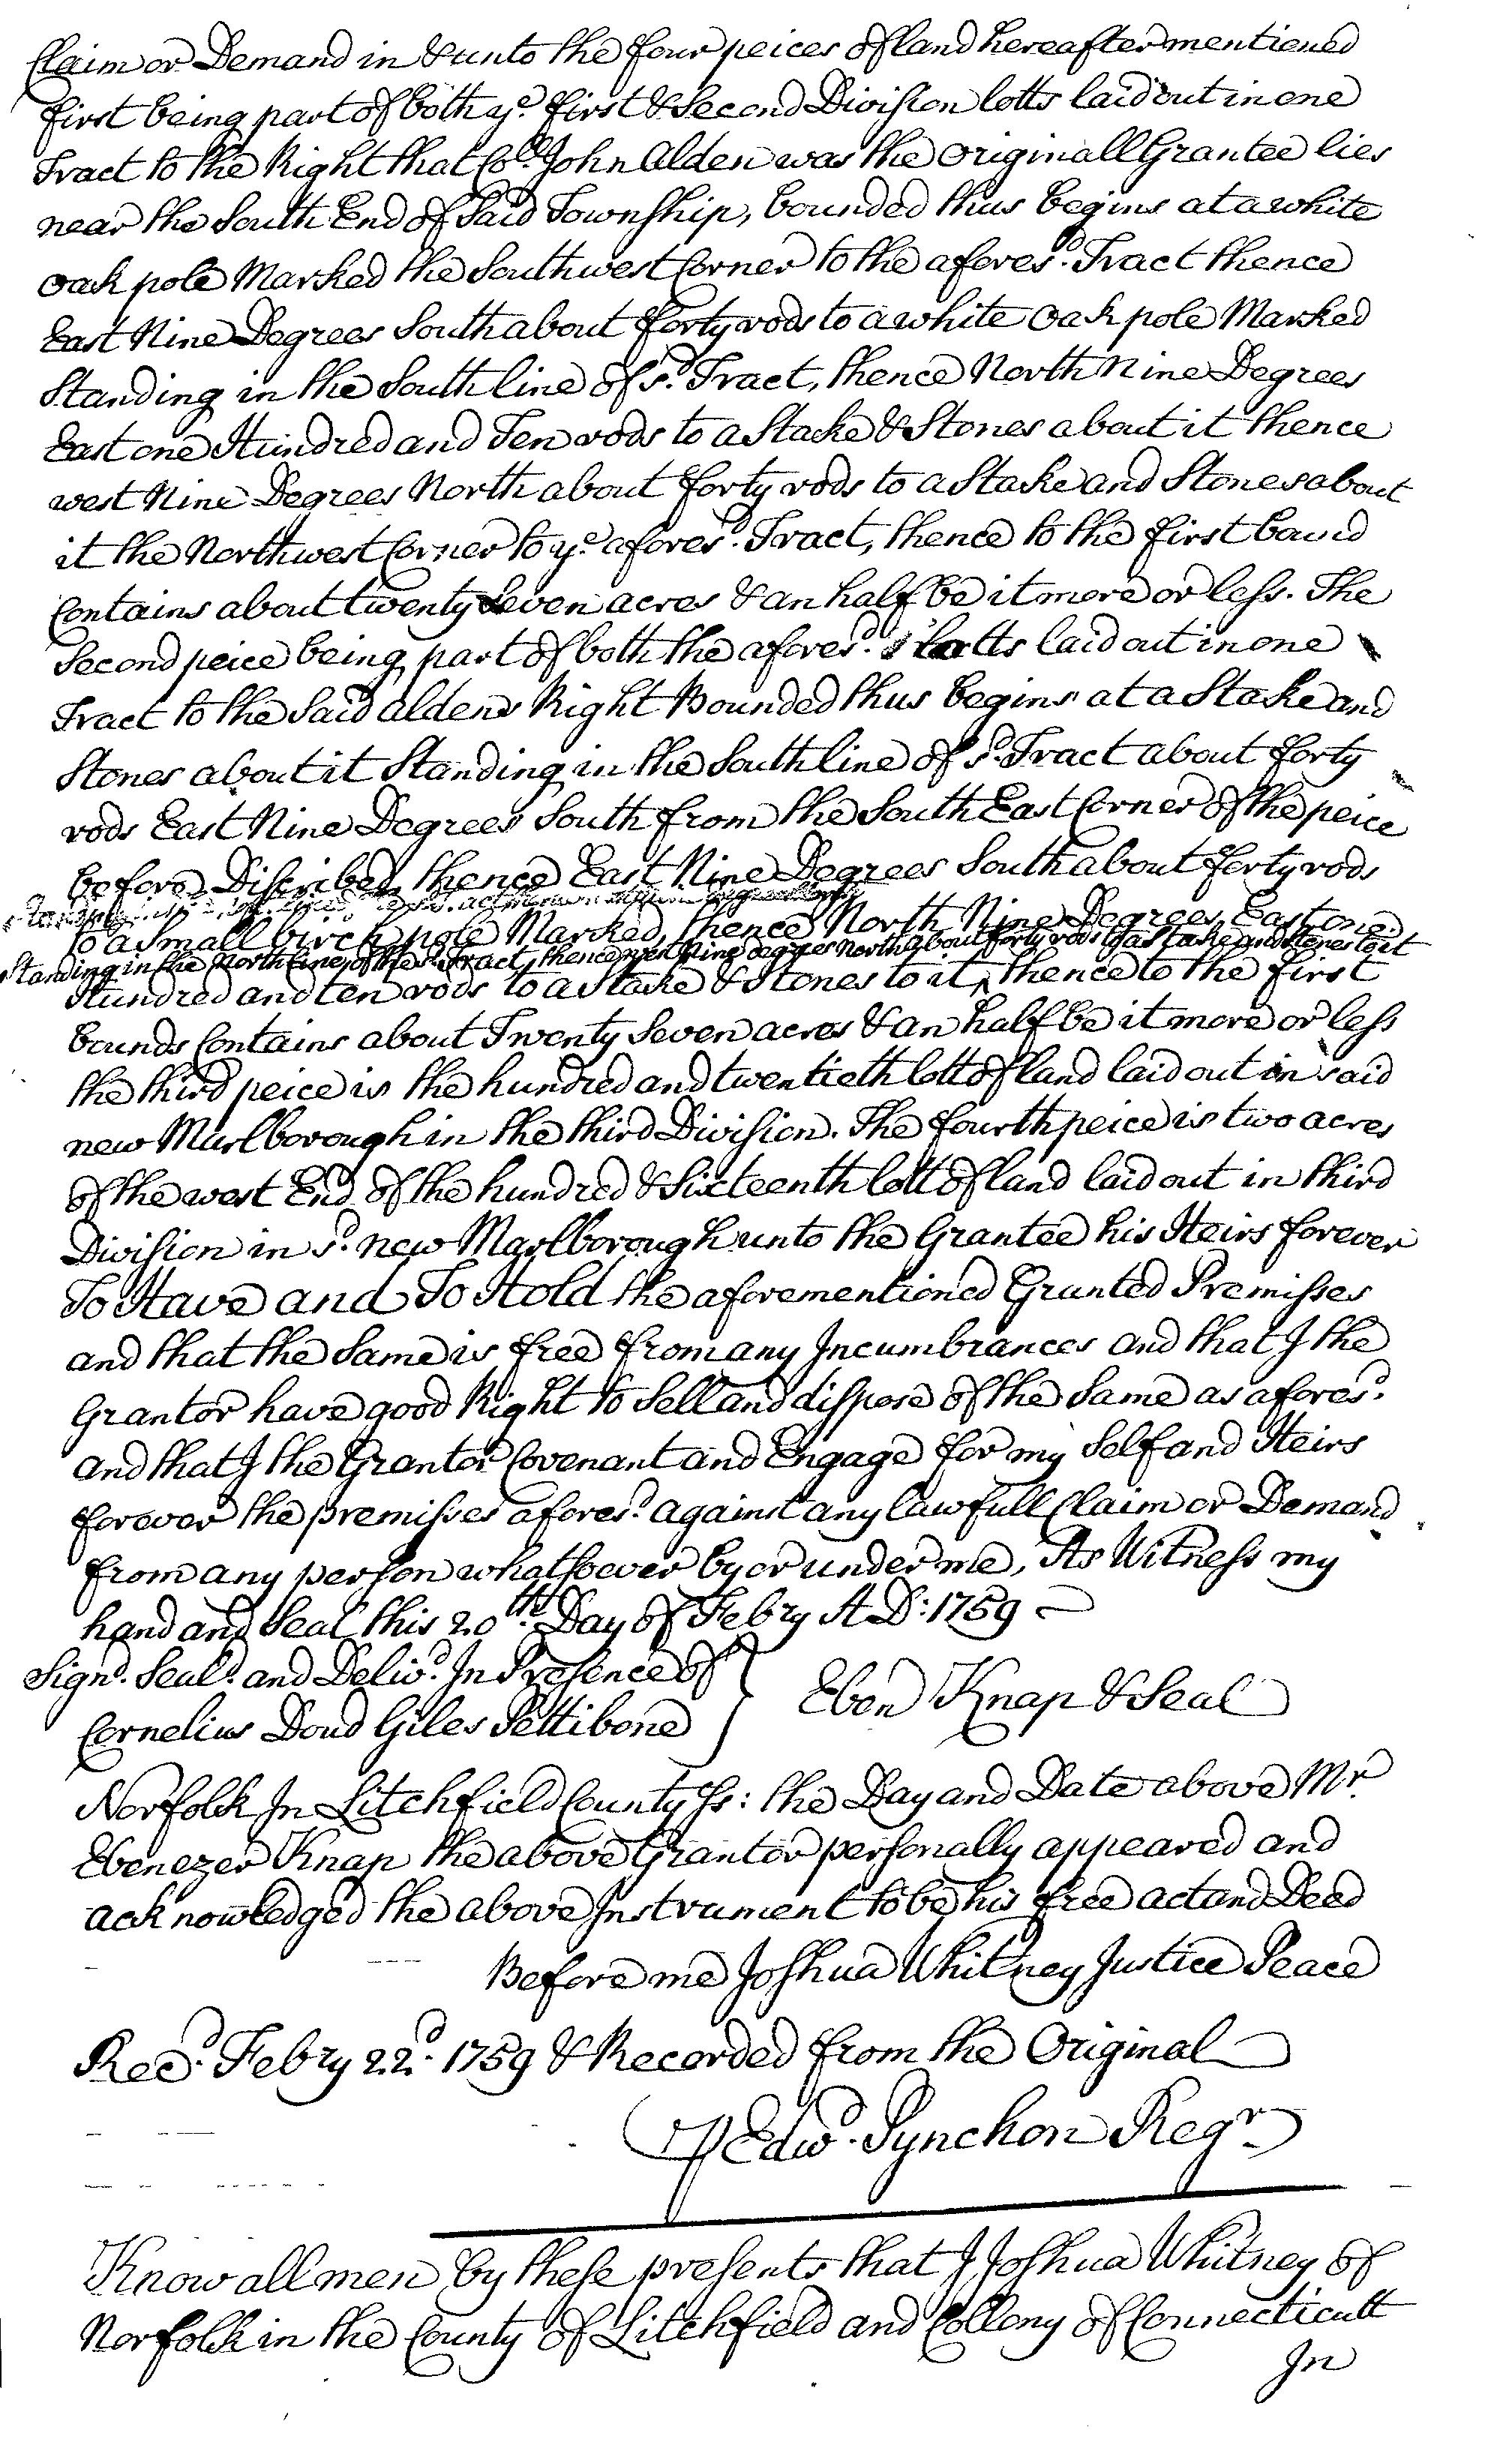 Claim or Demand in & unto the four peices of land hereafter mentioned
first being part of both ye. first & Second Division lotts laid out in one
Tract to the Right that Col. John Alden was the Originall Grantee lies
near the South End of Said Township, bounded thus begins at a white
Oak pole Marked the Southwest Corner to the afores.d Tract thence
East Nine Degrees South about forty rods to a white Oak pole Marked
Standing in the South line of s.d Tract, thence North Nine Degrees
East one Hundred and Ten rods to a Stake & Stones about it thence
west Nine Degrees North about forty rods to a Stake and Stones about
it the Northwest Corner to ye. afores.d Tract, thence to the first bound
Contains about twenty Seven acres & an half be it more or less. The
Second peice being part of both the afores.d lotts laid out in one
Tract to the Said aldens Right Bounded thus begins at a Stake and
Stones about it Standing in the South line of s.d Tract about forty
rods East Nine Degrees South from the South East Corner of the peice
before Discribed thence East Nine Degrees South about forty rods
to a Small birch pole Marked, thence North Nine Degrees East one
Standing in the North line of the s.d Tract, thence west Nine degrees North about forty rods to a Stake and Stones to it
Hundred and ten rods to a Stake & Stones to it ^ thence to the first
bounds Contains about Twenty Seven acres & an half be it more or less
the third peice is the hundred and twentieth lott of land laid out in said
new Marlborough in the third Division. The fourth peice is two acres
of the west End of the hundred & Sixteenth lott of land laid out in third
Division in s.d new Marlborough unto the Grantee his Heirs forever
To Have and To Hold the aforementioned Granted Premisses
and that the Same is free from any Incumbrances and that I the
Grantor have good Right to Sell and dispose of the Same as afores.d
and that I the Grantor Covenant and Engage for my Self and Heirs
forever the premisses afores.d against any lawfull Claim or Demand
from any person whatsoever by or under me, As Witness my
hand and Seal this 20th. Day of Febry A D: 1759
Sign.d Seal.d and Deliv.d In Presence of } Eben Knap & Seal
Cornelius Doud Giles Pettibone
Norfolk In Litchfield County Ss: the Day and Date above Mr.
Ebenezer Knap the above Grantor personally appeared and
acknowledged the above Instrument to be his free act and Deed
Before me Joshua Whitney Justice Peace
Rec.d Febry 22.d 1759 & Recorded from the Original
P Edw.d Pynchon Reg.r
Know all men by these presents that I Joshua Whitney of
Norfolk in the County of Litchfield and Collony of Connecticutt
In